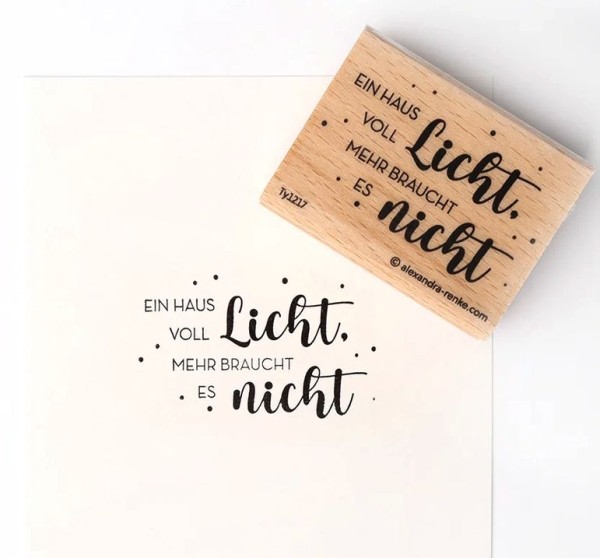 EIN HAUS
VOLL Licht,
MEHR BRAUCHT
ES nicht
Ty1217
© alexandra-renke.com
EIN HAUS
VOLL Licht,
MEHR BRAUCHT
ES nicht